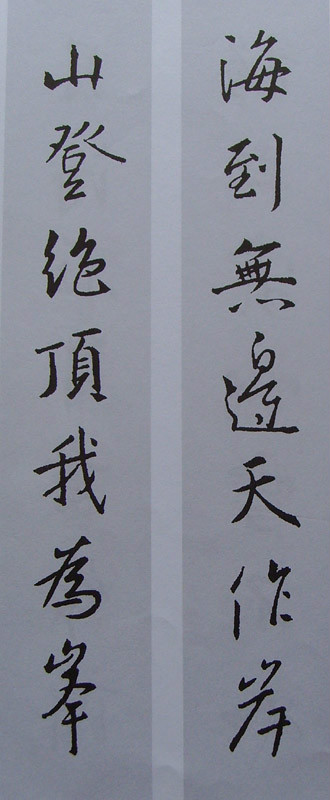 海到無邊天作岸
山登絶頂我為峯